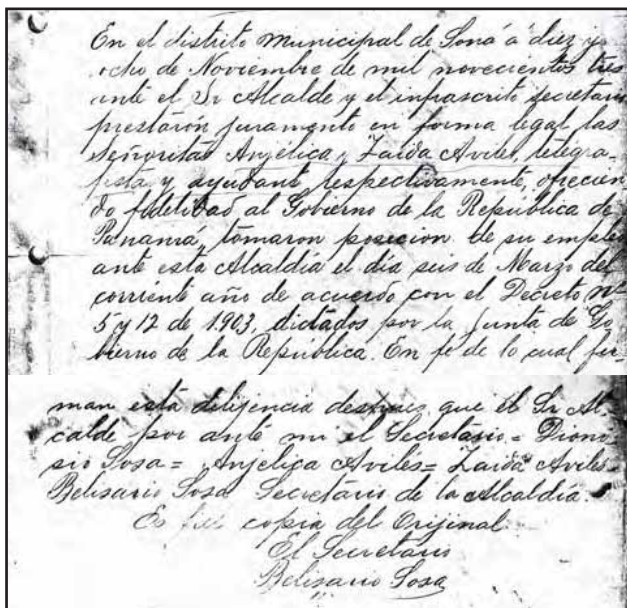 En el distrito Municipal de Soná á diez y
ocho de Noviembre de mil novecientos tres
ante el Sr Alcalde y el infrascrito secretario
prestarón juramento en forma legal las
Señoritas Anjélica y Zaida Aviles, telegra-
fista y ayudante respectivamente, ofrecien
do fidelidad al Gobierno de la República de
Panamá, tomaron posecion de su empleo
ante esta Alcaldía el día seis de Marzo del
corriente año de acuerdo con el Decreto Nº
5 y 12 de 1903, dictados por la Junta de Go
bierno de la República. En fé de lo cual fir-
man esta dilijencia despues que el Sr Al-
calde por anté mi el Secretário = Dioni
sio Sosa = Anjelica Avilés = Zaida Aviles =
Belisario Sosa Secretário de la Alcaldía.
Es fiel copia del Orijinal
El Secretario
Belisario Sosa